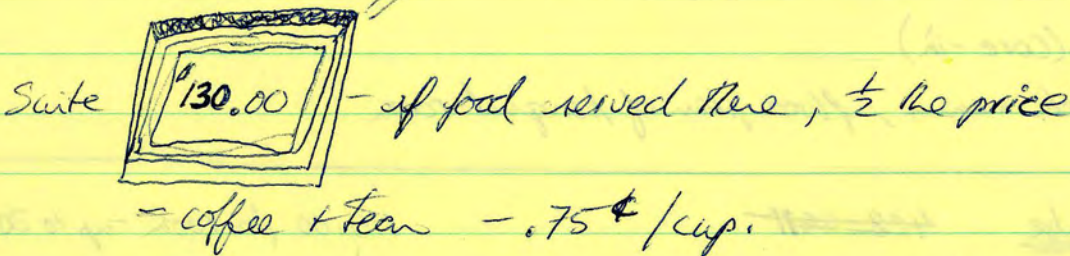 Suite $130.00 - if food served there, ½ the price
- coffee + tea - .75¢ / cup.